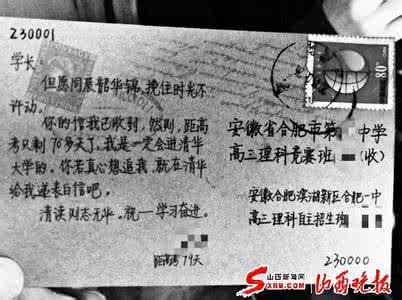 230001
学长:
但愿同展韶华锦,挽住时光不
许动。
你的信我已收到,然则,距高
考只剩76多天了,我是一定会进清华
大学的。你若真心想追我,就在清华
给我递表白信吧。
清读则志无华。祝—学习奋进。
79天
80分
安徽省合肥市第 中学
高三理科竞赛班 (收)
安徽合肥滨湖新区合肥一中
高三理科自主招生班
230000
山西新闻网
SXRB.COM
山西晚报